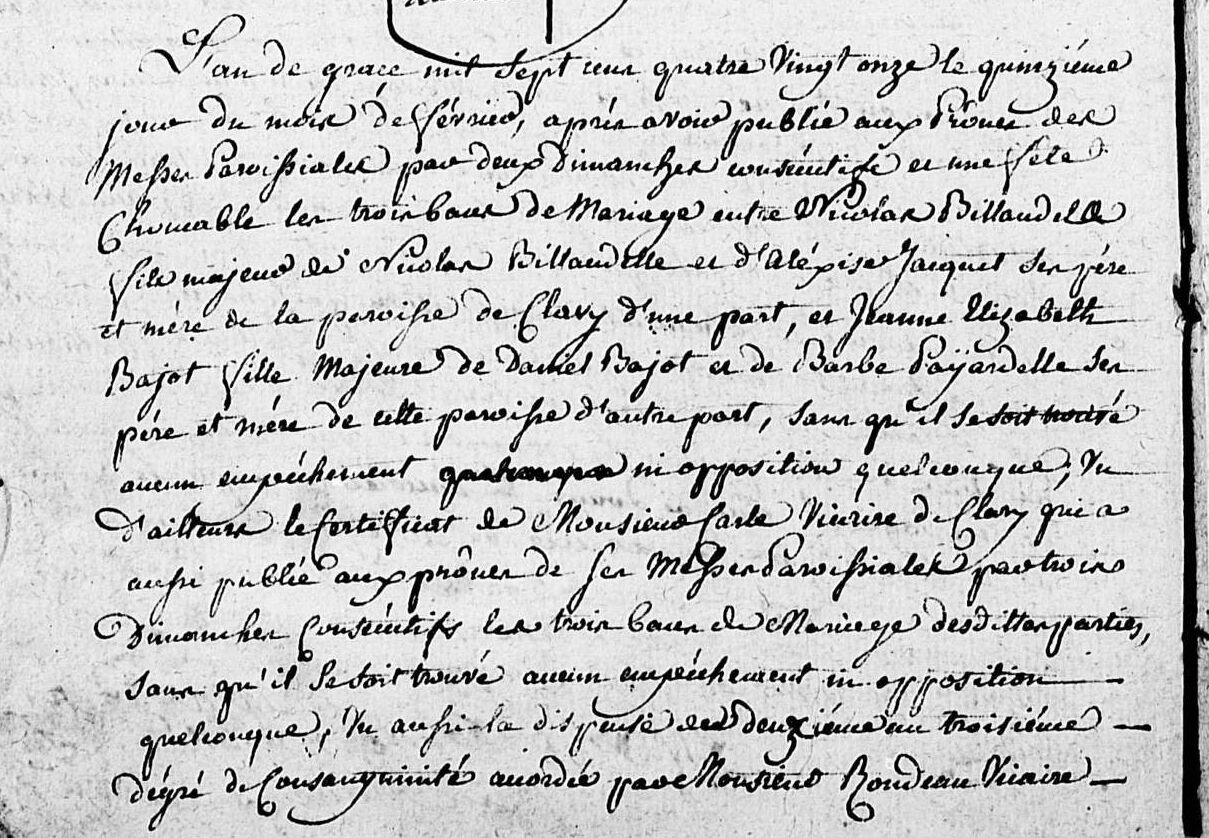 L'an de grace mil sept cens quatre Vingt onze le quinziéme
jour du mois de février, aprés avoir publié aux Prônes des
Messes Paroissiales par deux Dimanches consécutifs et une fete
Chomable les trois bans de Mariage entre Nicolas Billaudelle
fils majeur de Nicolas Billaudelle et d'Aléxise Jacquet ses pére
et mére de la paroisse de Clavy d'une part, et Jeanne Elizabeth
Bajot fille Majeure de Daniel Bajot et de Barbe Payardelle ses
pére et mére de cette paroisse d'autre part, sans qu'il se soit trouvé
aucun empéchement ni opposition quelconque, Vu
d'ailleurs le Certificat de Monsieur Carle Vicaire de Clavy qui a
aussi publié aux prônes de ses Messes Paroissiales par trois
Dimanches Consécutifs les trois bans de Mariage desdittes parties,
sans qu'il se soit trouvé aucun empéchement ni opposition
quelconque, Vu aussi la dispense du deuxiéme au troisiéme
dégré de Consanguinité accordée par Monsieur Rondeau Vicaire